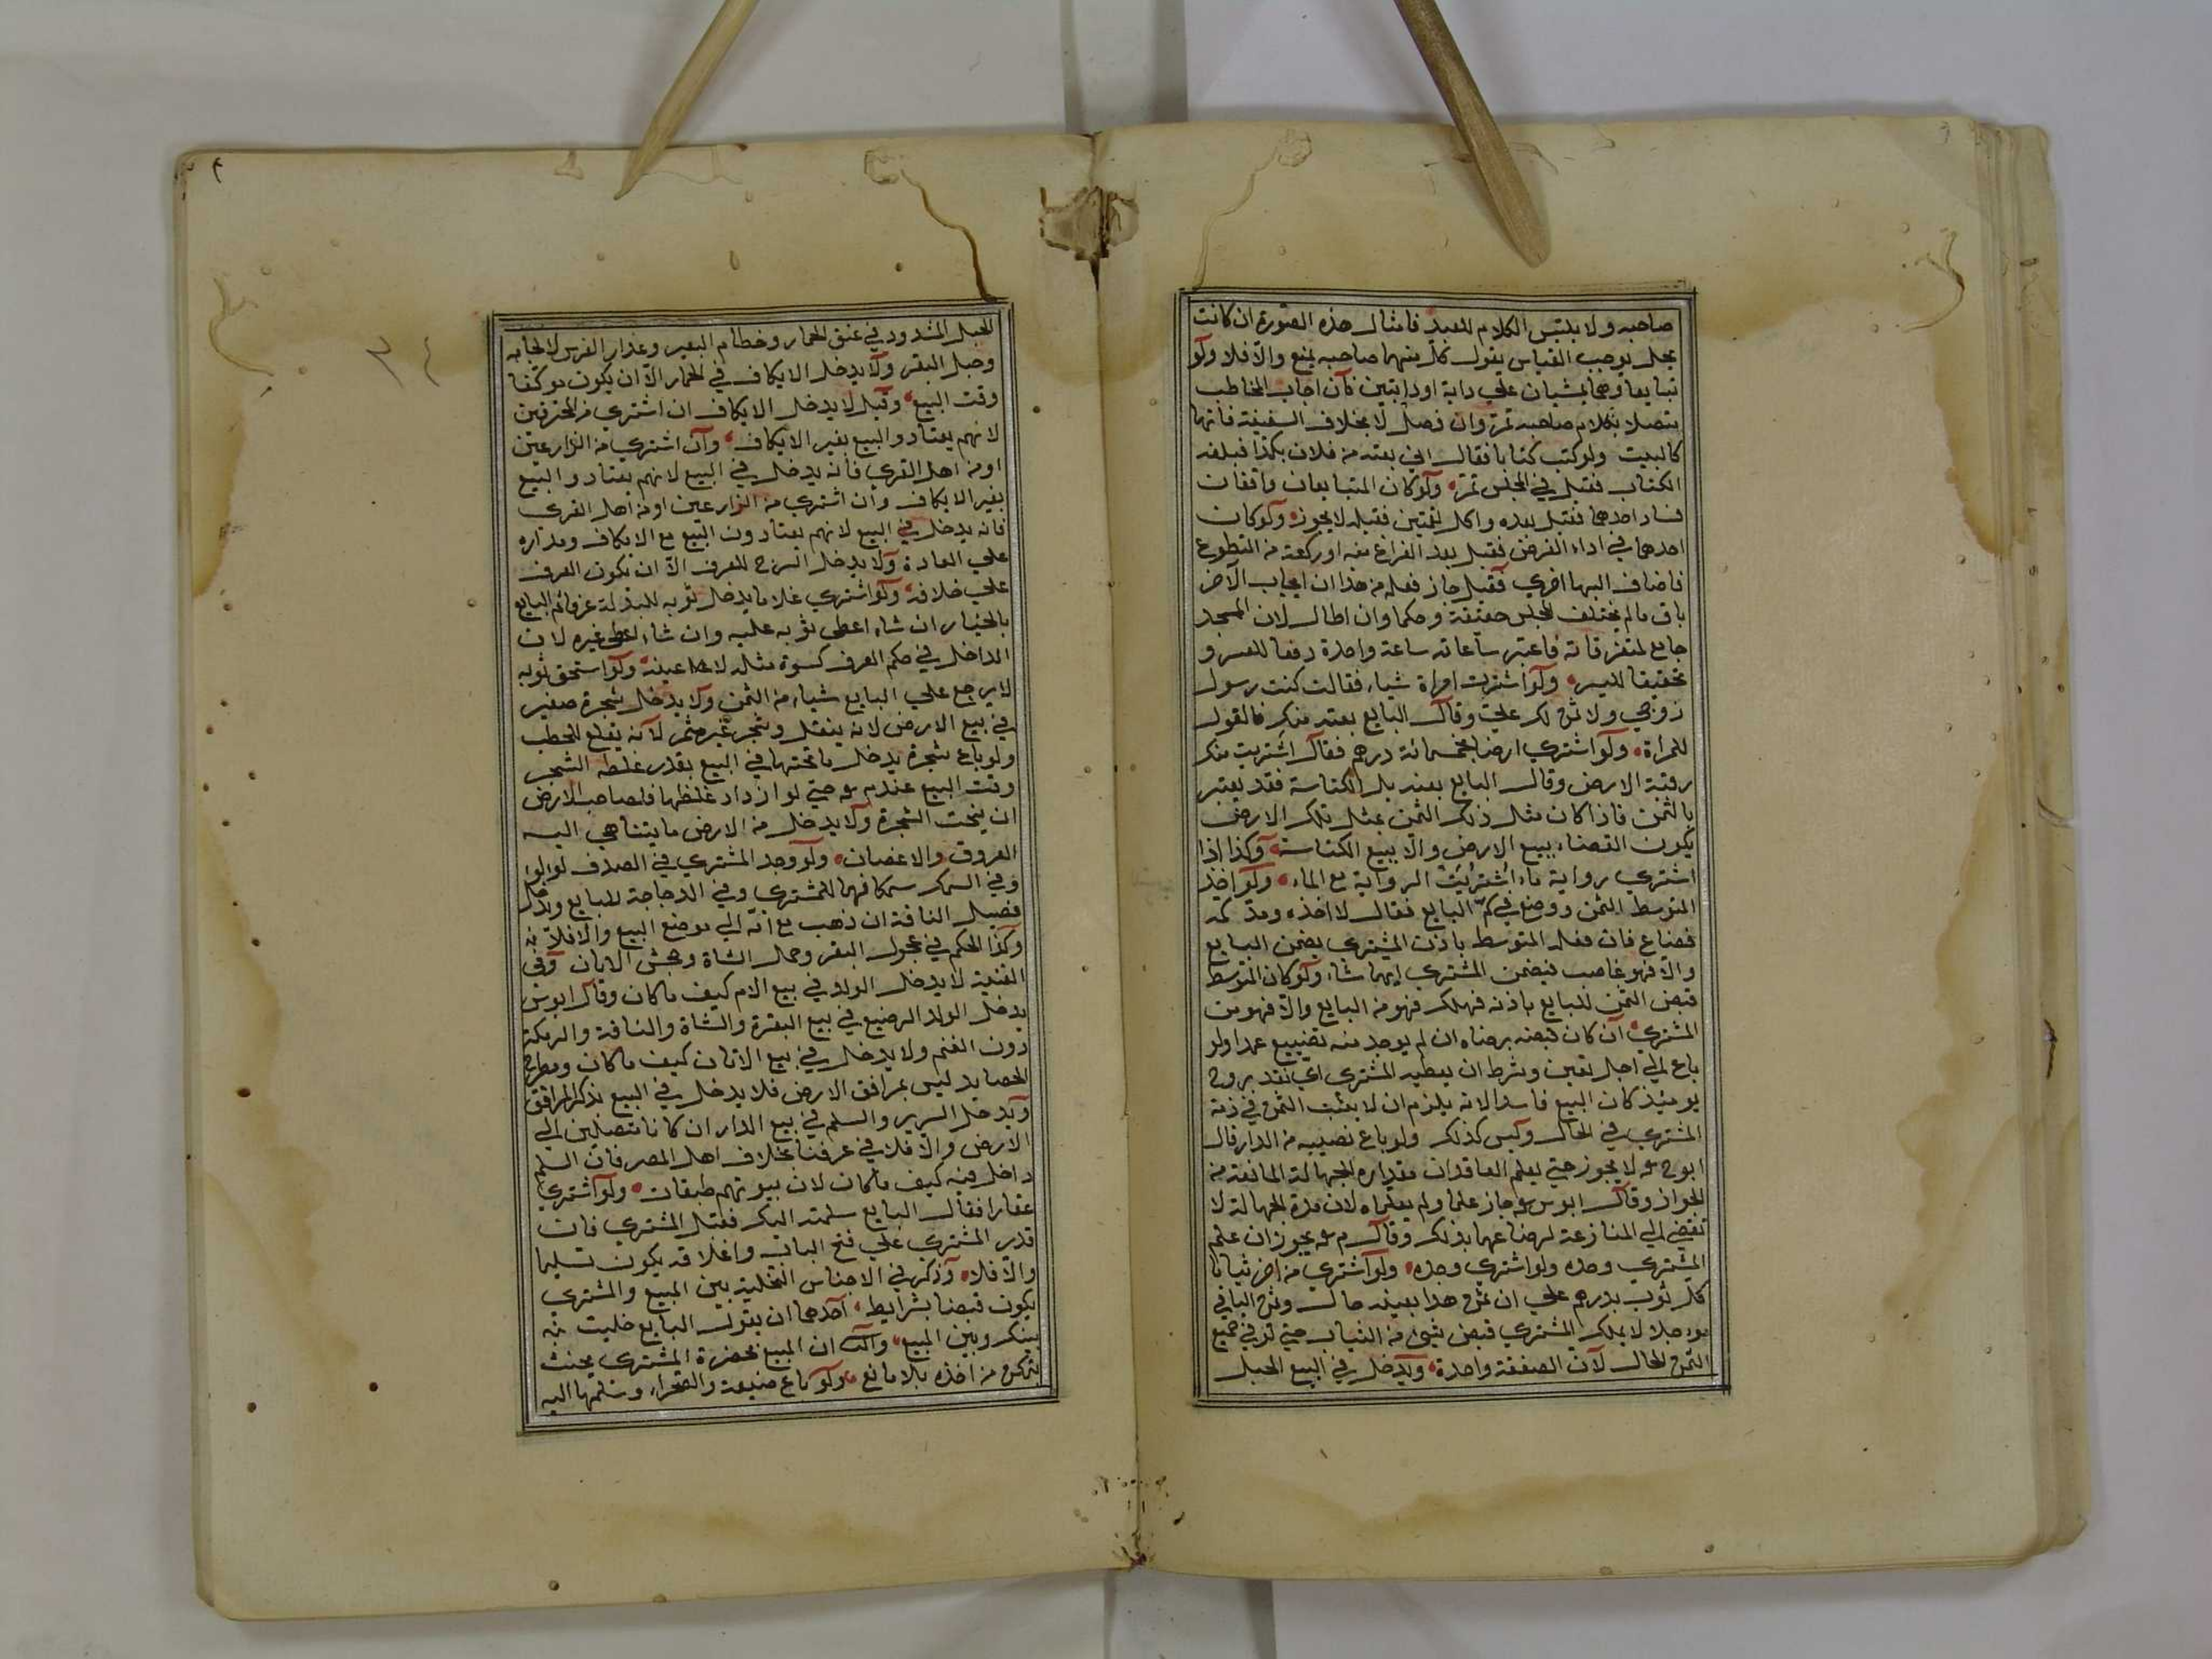 صاحبه ولا يلتبس الكلام للبعد فامثال هذه الصورة ان كانت
بحل يوجب القياس يقول كل منهما صاحبه يمنع والا فلا ولو
تبايعا وهما يمشيان علي دابة او دابتين فان اجاب المخاطب
متصلا بكلام صاحبه تم وان فصل لا بخلاف السفينة فانها
كالبيت ولو كتب كتابا فقال اني بعته من فلان بكذا فبلغه
الكتاب فقبل في المجلس تم ولو كان المتبايعان واقفان
فسار احدهما فقبل بعده واكل لقمتين فقبله لا يجوز ولو كان
احدهما في اداء الفرض فقبل بعد الفراغ منه او ركعة من التطوع
فاضاف اليها اخري فقبل جاز فعلم من هذا ان ايجاب الاخر
باق ما لم يختلف المجلس حقيقة وحكما وان اطال لان المسجد
جامع لمتفرقاته فاعتبر ساعاته ساعة واحدة دفعا للعسر و
تحقيقا لليسر ولو اشتريت امراة شياء فقالت كنت رسول
زوجي ولا ثمن لك علي وقال البايع بعته منك فالقول
للمراة ولو اشتري ارضا بخمسمائة درهم فقال اشتريت منك
رقبة الارض وقال البايع بعته بل الكتاسة فقد يعتبر
بالثمن فاذا كان مثل ذلك الثمن بمثل تلك الارض
يكون القضاء ببيع الارض والا ببيع الكتاسة وكذا اذا
اشتري رواية ماء اشتريت الرواية مع الماء ولو اخذ
المتوسط الثمن ووضع في كم البايع فقال لا اخذه ومد كمه
فضاع فان فعله المتوسط باذن المشتري يضمن البايع
والا فهو غاصب فيضمن المشتري ايهما شاء ولو كان المتوسط
قبض الثمن للبايع باذنه فهلك فهو من البايع والا فهو من
المشتري ان كان قبضه برضاه ان لم يوجد منه تضييع عمدا ولو
باع الي اجل تعين وشرط ان يعطيه المشتري اي نقد يروج
يومئذ كان البيع فاسدا لانه يلزم ان لا يثبت الثمن في ذمة
المشتري في الحال وليس كذلك ولو باع نصيبه من الدار قال
ابو ح رحمه لا يجوز حتي يعلم العاقدان مقداره للجهالة المانعة من
الجواز وقال ابو س رحمه جاز علما ولم يعلماه لان هذه الجهالة لا
تفضي الي المنازعة لرضاعهما بذلك وقال م رحمه يجوز ان علم
المشتري وحده ولو اشتري وحده ولو اشتري من اخر ثيابا
كل ثوب بدرهم علي ان ثمن هذا بعينه حال وثمن الباقي
مؤجلا لا يملك المشتري قبض شيئ من الثياب حتي يوفي جميع
الثمن الحال لان الصفقة واحدة ويدخل في البيع الحبل
٤
٣٤
الحبل المشدود في عنق الحمار وخطام البعير وعذار الفرس لا لجامه
وحبل البقر ولا يدخل الايكاف في الحمار الا ان يكون موكفا
وقت البيع وقيل لا يدخل الايكاف ان اشتري من المحترفين
لانهم يعتادوا البيع بغير الايكاف وان اشتري من الزارعين
او من اهل القري فانه يدخل في البيع لانهم يعتادوا البيع
بغير الايكاف وان اشتري من الزارعين او من اهل القري
فانه يدخل في البيع لانهم يعتادون البيع مع الايكاف ومداره
علي العادة ولا يدخل السرج للعرف الا ان يكون العرف
علي خلافه ولو اشتري غلاما يدخل ثوبه للبذلة البايع
بالخيار ان شاء اعطي ثوبه عليه وان شاء اعطي غيره لان
الداخل في حكم العرف كسوة مثله لا ما عينه ولو استحق ثوبه
لا يرجع علي البايع شياء من الثمن ولا يدخل شجرة صغير
في بيع الارض لانه ينقل وشجر غير مثمر لانه يقلع للحطب
ولو باع شجرة يدخل ما تحتها في البيع بقدر غلظه الشجر
وقت البيع عند م رحمه حتي لو ازداد غلظها فلصاحب الارض
ان ينحت الشجرة ولا يدخل من الارض ما يتناهي اليه
العروق والاغصان ولو وجد المشتري في الصدف لولوا
وفي السمك سمكا فهما للمشتري وفي الدجاجة للبايع ويدخل
فصيل الناقة ان ذهب مع امه الي موضع البيع والا فلا
وكذا الحكم في عجول البقر وحمل الشاة وجحش الاتان وفي
القنية لا يدخل الولد في بيع الام كيف ما كان وقال ابو س
يدخل الولد الرضيع في بيع البقرة والشاة والناقة والرمكة
دون الغنم ولا يدخل في بيع الاتان كيف ما كان ومطرح
الحصايد ليس بمرافق الارض فلا يدخل في البيع بذكر المرافق
ويدخل السرير والسلم في بيع الدار ان كانا متصلين الي
الارض والا فلا في عرفنا بخلاف اهل المصر فان السلم
داخل فيه كيف ما كان لان بيوتهم طبقات ولو اشتري
عقارا فقال البايع سلمته اليك فقبل المشتري فان
قدر المشتري علي فتح الباب واغلاقه يكون تسليما
والا فلا وذكر في الاجناس التخلية بين المبيع والمشتري
يكون قبضا بشرايط احدها ان يقول البايع خليت
بينك وبين المبيع والثاني ان المبيع بحضرة المشتري بحيث
يتمكن من اخذه بلا مانع ولو باع ضيعة والصحراء وسلمها اليه